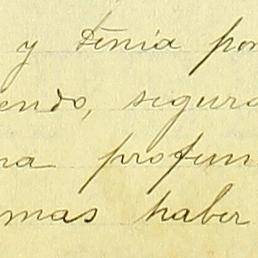 y tenia por
endo, segura
na profun
mas haber